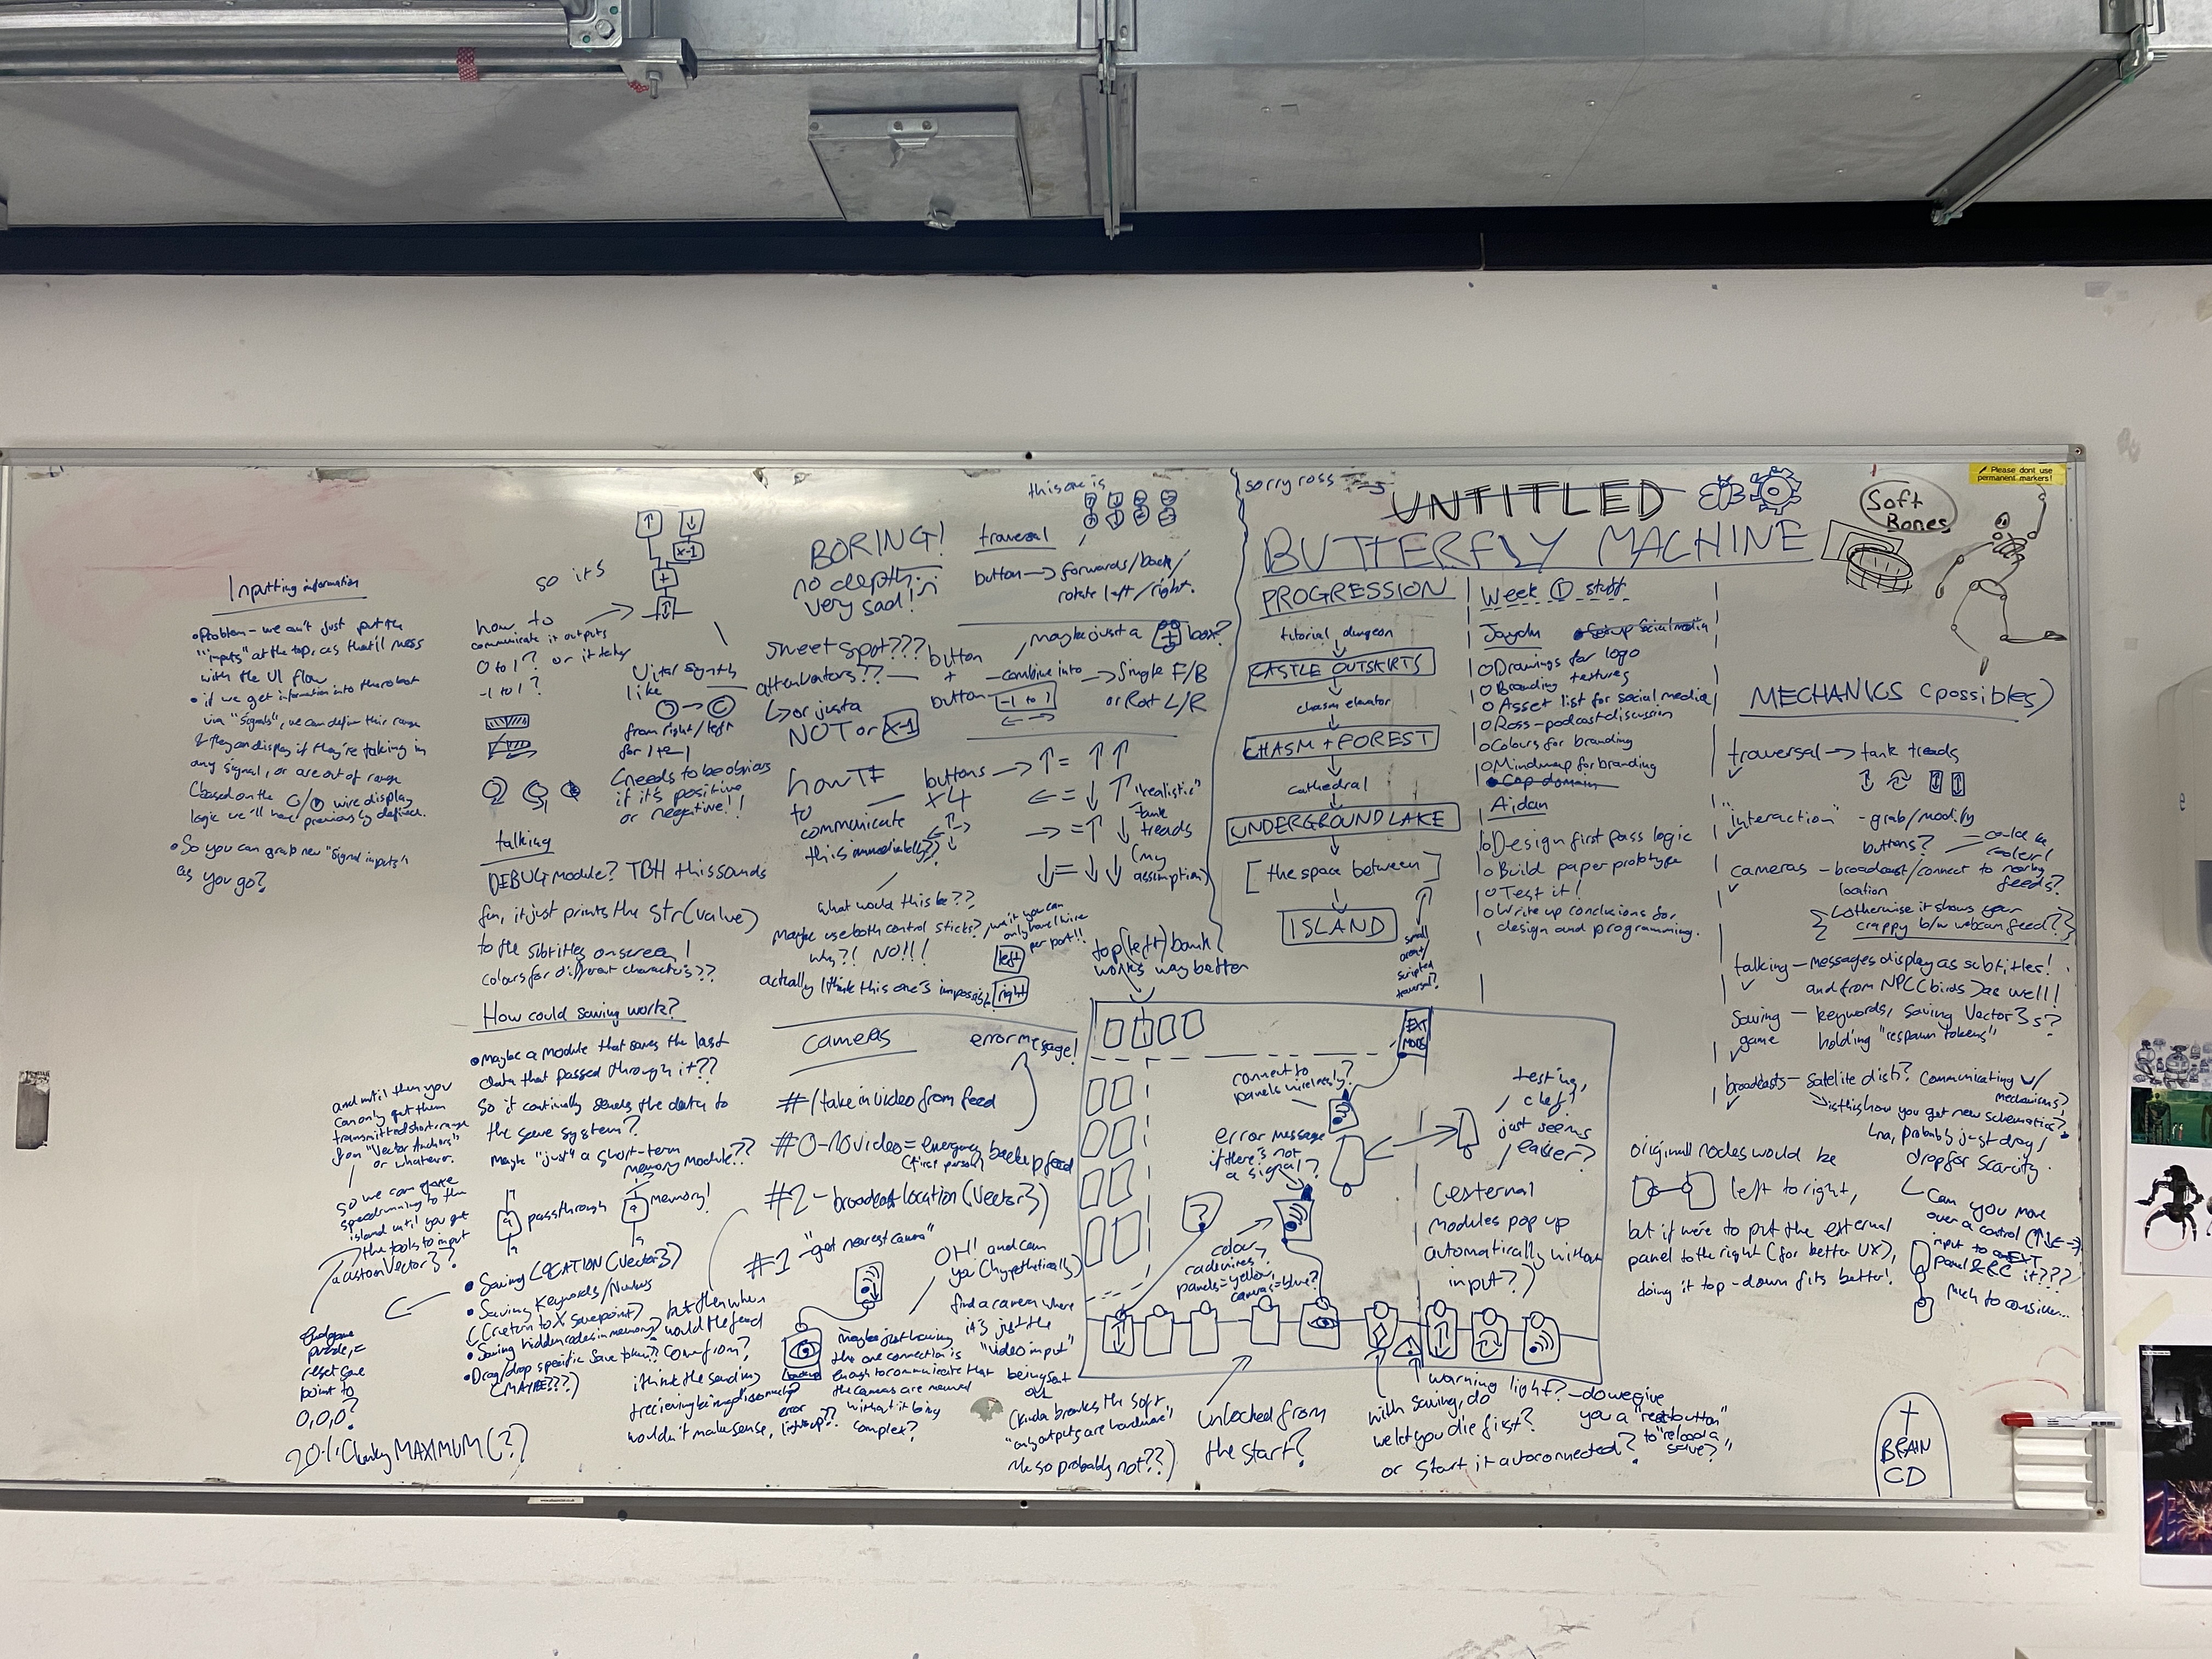 Inputting information
• Problem - we can't just put the
"inputs" at the top, as that'll mess
with the UI flow
• if we get information into the robot
via "signals", we can define this range
& they can display if they're taking in
any signal, or are out of range
(based on the wire display
logic we'll have previously defined.
• So you can grab new "signal inputs"
as you go?
and until then you
can only get them
transmitted short range
from "Vector Anchors"
or whatever.
so we can
speedrunning to the
island until you get
the tools to input
a custom Vector3?
Endgame
puzzle, =
reset save
point to
0,0,0?
20% Clunky MAXIMUM (?)
so its
↑ ↓
x-1
+
how to
communicate it outputs
0 to 1? or it takes
-1 to 1?
Vital Synths
like
from right/left
for 1 + -1
(needs to be obvious
if it's positive
or negative!!
talking
DEBUG module? TBH this sounds
fun, it just prints the str(value)
to the subtitles onscreen!
colours for different characters??
How could saving work?
• Maybe a module that saves the last
data that passed through it??
So it continually sends the data to
the save system?
Maybe "just" a short-term
memory module??
passthrough
memory!
• Saving LOCATION (Vector3)
• Saving Keywords/Numbers
((return to X savepoint)
• Saving hidden codes in memory?
• Drag/drop specific save token??
(MAYBE???)
BORING!
no depth :(
very sad!
sweet spot???
attenuators??
↳ or just a
NOT or x-1
how TF
to
communicate
this immediately??
buttons
x4
what would this be??
Maybe use both control sticks?
Why?! NO!!!
actually I think this one's impossible
wait you can
only have 1 wire
per port!!
left
right
this one is
traversal
button → forwards/back/
rotate left/right.
maybe just a + box?
button
+
button
combine into
-1 to 1
→ single F/B
or Rot L/R
→ ↑ = ↑ ↑
← = ↓ ↑
→ = ↑ ↓
↓ = ↓ ↓
"realistic"
tank
treads
(my
assumption)
cameras
error message!
#1 take in video from feed
#0 - no video = emergency backup feed
(first person)
#2 - broadcast location (Vector3)
#1 - "get nearest camera"
but then when
would the feed
come from?
i think the sending
+ recieving being disconnected
wouldn't make sense,
error
lights up??
backup
maybe just having
the one connection is
enough to communicate that
the cameras are meaned
without it being
complex?
OH! and can
you (hypothetically)
find a camera where
it's just the
"video input"
being sent
out
(kinda breaks the soft
"only outputs are hardware"
rule so probably not??)
sorry ross
UNTITLED
BUTTERFLY MACHINE
Soft
Bones
Please dont use
permanent markers!
PROGRESSION
tutorial dungeon
CASTLE OUTSKIRTS
chasm elevator
CHASM + FOREST
cathedral
UNDERGROUND LAKE
[the space between]
ISLAND
small
area/
scripted
traversal?
Week 1 stuff
Jaydn
Setup Social media
Drawings for logo
Branding textures
Asset list for social media
Ross - podcast discussion
Colours for branding
Mindmap for branding
Cop domain
Aidan
Design first pass logic
Build paper prototype
Test it!
Write up conclusions for
design and programming.
MECHANICS (possibles)
traversal → tank treads
"interaction" - grab/modify
buttons? - could be
cooler!
cameras - broadcast/connect to nearby
location feeds?
(otherwise it shows your
crappy b/w webcam feed??)
talking - messages display as subtitles!
and from NPC (birds) as well!
Saving - keywords, saving Vector3s?
game holding "respawn tokens"
broadcasts - satelite dish? Communicating w/
mechanisms?
↳ is this how you get new schematics?
↳ na, probably just drag/
drop for scarcity.
top (left) bank
works way better
EXT
MODS
connect to
panels wirelessly?
error message
if there's not
a signal?
?
testing,
chef?
just seems
easier?
(external
modules pop up
automatically without
input?)
colour
code wires?
panels=yellow,
cameras=blue?
unlocked from
the start?
warning light?
with saving, do
we let you die first?
or start it autoconnected?
- do we give
you a "reset button"
to "reload a
save?"
original nodes would be
left to right,
but if we're to put the external
panel to the right (for better UX),
doing it top-down fits better!
Can you move
over a control (↑↓←→)
input to an EXT
panel & RC it???
Much to consider...
BRAIN
CD